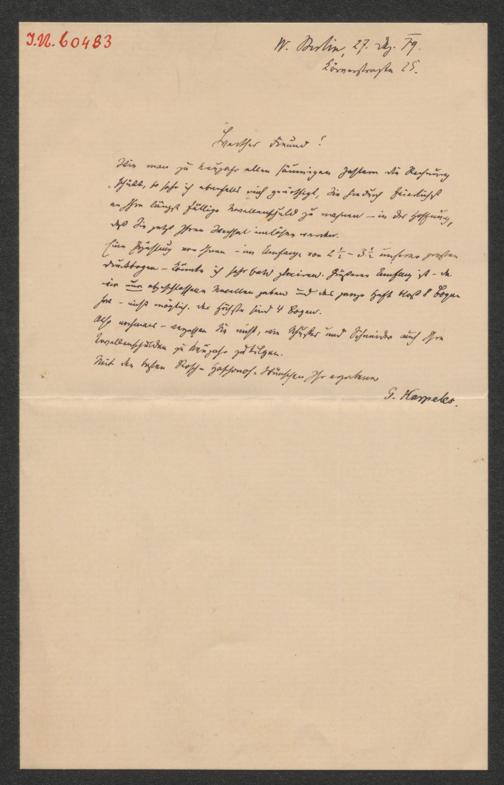 J.N. 60483
W. Berlin, 27. Dez. 79.
Körnerstraße 25.
Werther Freund!
Wie man zu Neujahr allen säumigen Zahlern die Rechnung
schickt, so sehe ich ebenfalls mich genöthigt, Sie hiedurch
an Ihre längst fällige Novellenschuld zu mahnen – in der Hoffnung,
daß Sie jetzt Ihren Wechsel einlösen werden.
Eine Erzählung von Ihnen – im Umfange von 2½ – 3½ unserer großen
Druckbogen – könnte ich sehr bald placiren. Größerer Umfang ist – da
wir nur abgeschlossene Novellen geben und das ganze Heft bloß 8 Bogen
hat – nicht möglich. das Höchste sind 4 Bogen.
Also nochmals – vergessen Sie nicht, wie Schuster und Schneider auch Ihre
Novellenschulden zu Neujahr zu tilgen.
Mit den besten Wünschen Ihr ergebener
G. Karpeles.